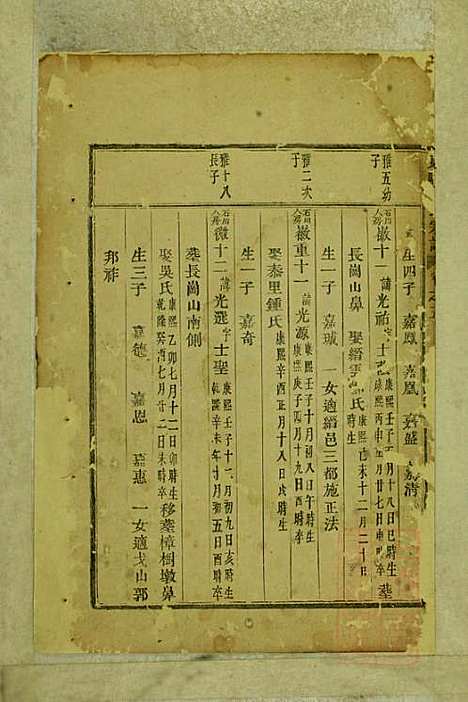 生四子 嘉鳳 嘉凰 嘉盛 嘉清
雅五幼子
徽十 諱光祐字士 康熙壬子 月十八日巳時生 康熙丙申 月廿七日申時卒 葬
長崗山鼻 娶縉雲 氏 康熙 時生 未十二月二十日
生一子 嘉珹 一女適縉邑三都施正法
雅二次子
徽重十一 諱光源 康熙壬子十月初八日午時生 康熙庚子四月十九日酉時卒
娶泰里鍾氏 康熙辛酉正月十八日戌時生
生一子 嘉奇
雅十八長子
微十二 諱光選字士聖 康熙壬子十一月初九日亥時生 乾隆辛未年十月初五日酉時卒
葬長崗山南側
娶吳氏 康熙乙卯七月十二日卯時生 乾隆癸酉七月廿二日未時卒 移葬樟樹墩鼻
生三子 嘉德 嘉恩 嘉惠 一女適戈山郭
邦祚